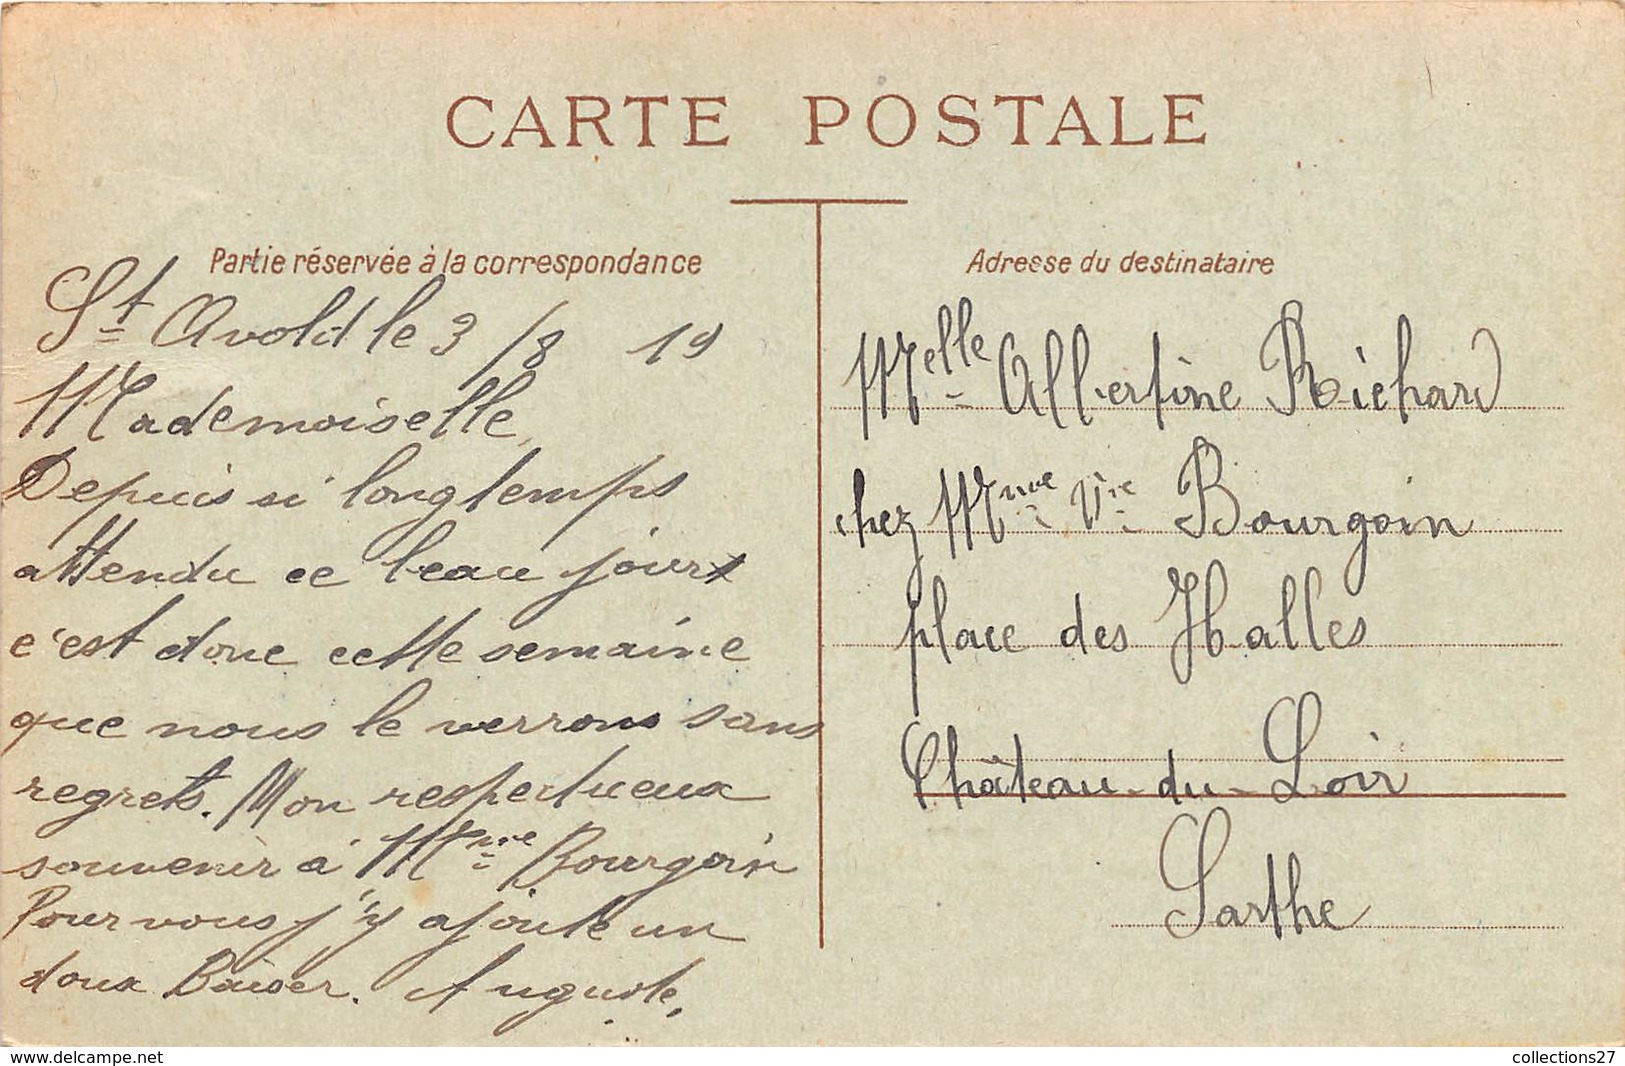 CARTE POSTALE
Partie réservée à la correspondance
St Avold le 3/8 19
Mademoiselle,
Depuis si longtemps
attendu ce beau jour
c'est donc cette semaine
que nous le verrons sans
regrets. Mon respectueux
souvenir à Mme Bourgoin
Pour vous j'y ajoute un
doux Baiser. Auguste,
Adresse du destinataire
Melle Albertine Richard
chez Mme Vve Bourgoin
place des Halles
Château-du-Loir
Sarthe
www.delcampe.net
collections27